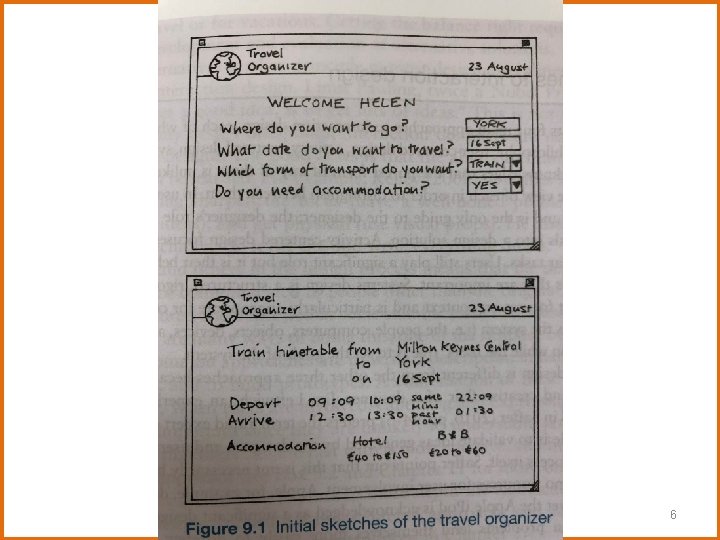 Travel
Organizer
23 August
WELCOME HELEN
Where do you want to go? YORK
What date do you want to travel? 16 Sept
Which form of transport do you want? TRAIN
Do you need accommodation? YES
Travel
Organizer
23 August
Train timetable from Milton Keynes Central
to York
on 16 Sept
Depart 09:09 10:09 same mins past hour 22:09
Arrive 12:30 13:30 01:30
Accommodation Hotel B&B
€40 to €150 €20 to €60
Figure 9.1 Initial sketches of the travel organizer
6